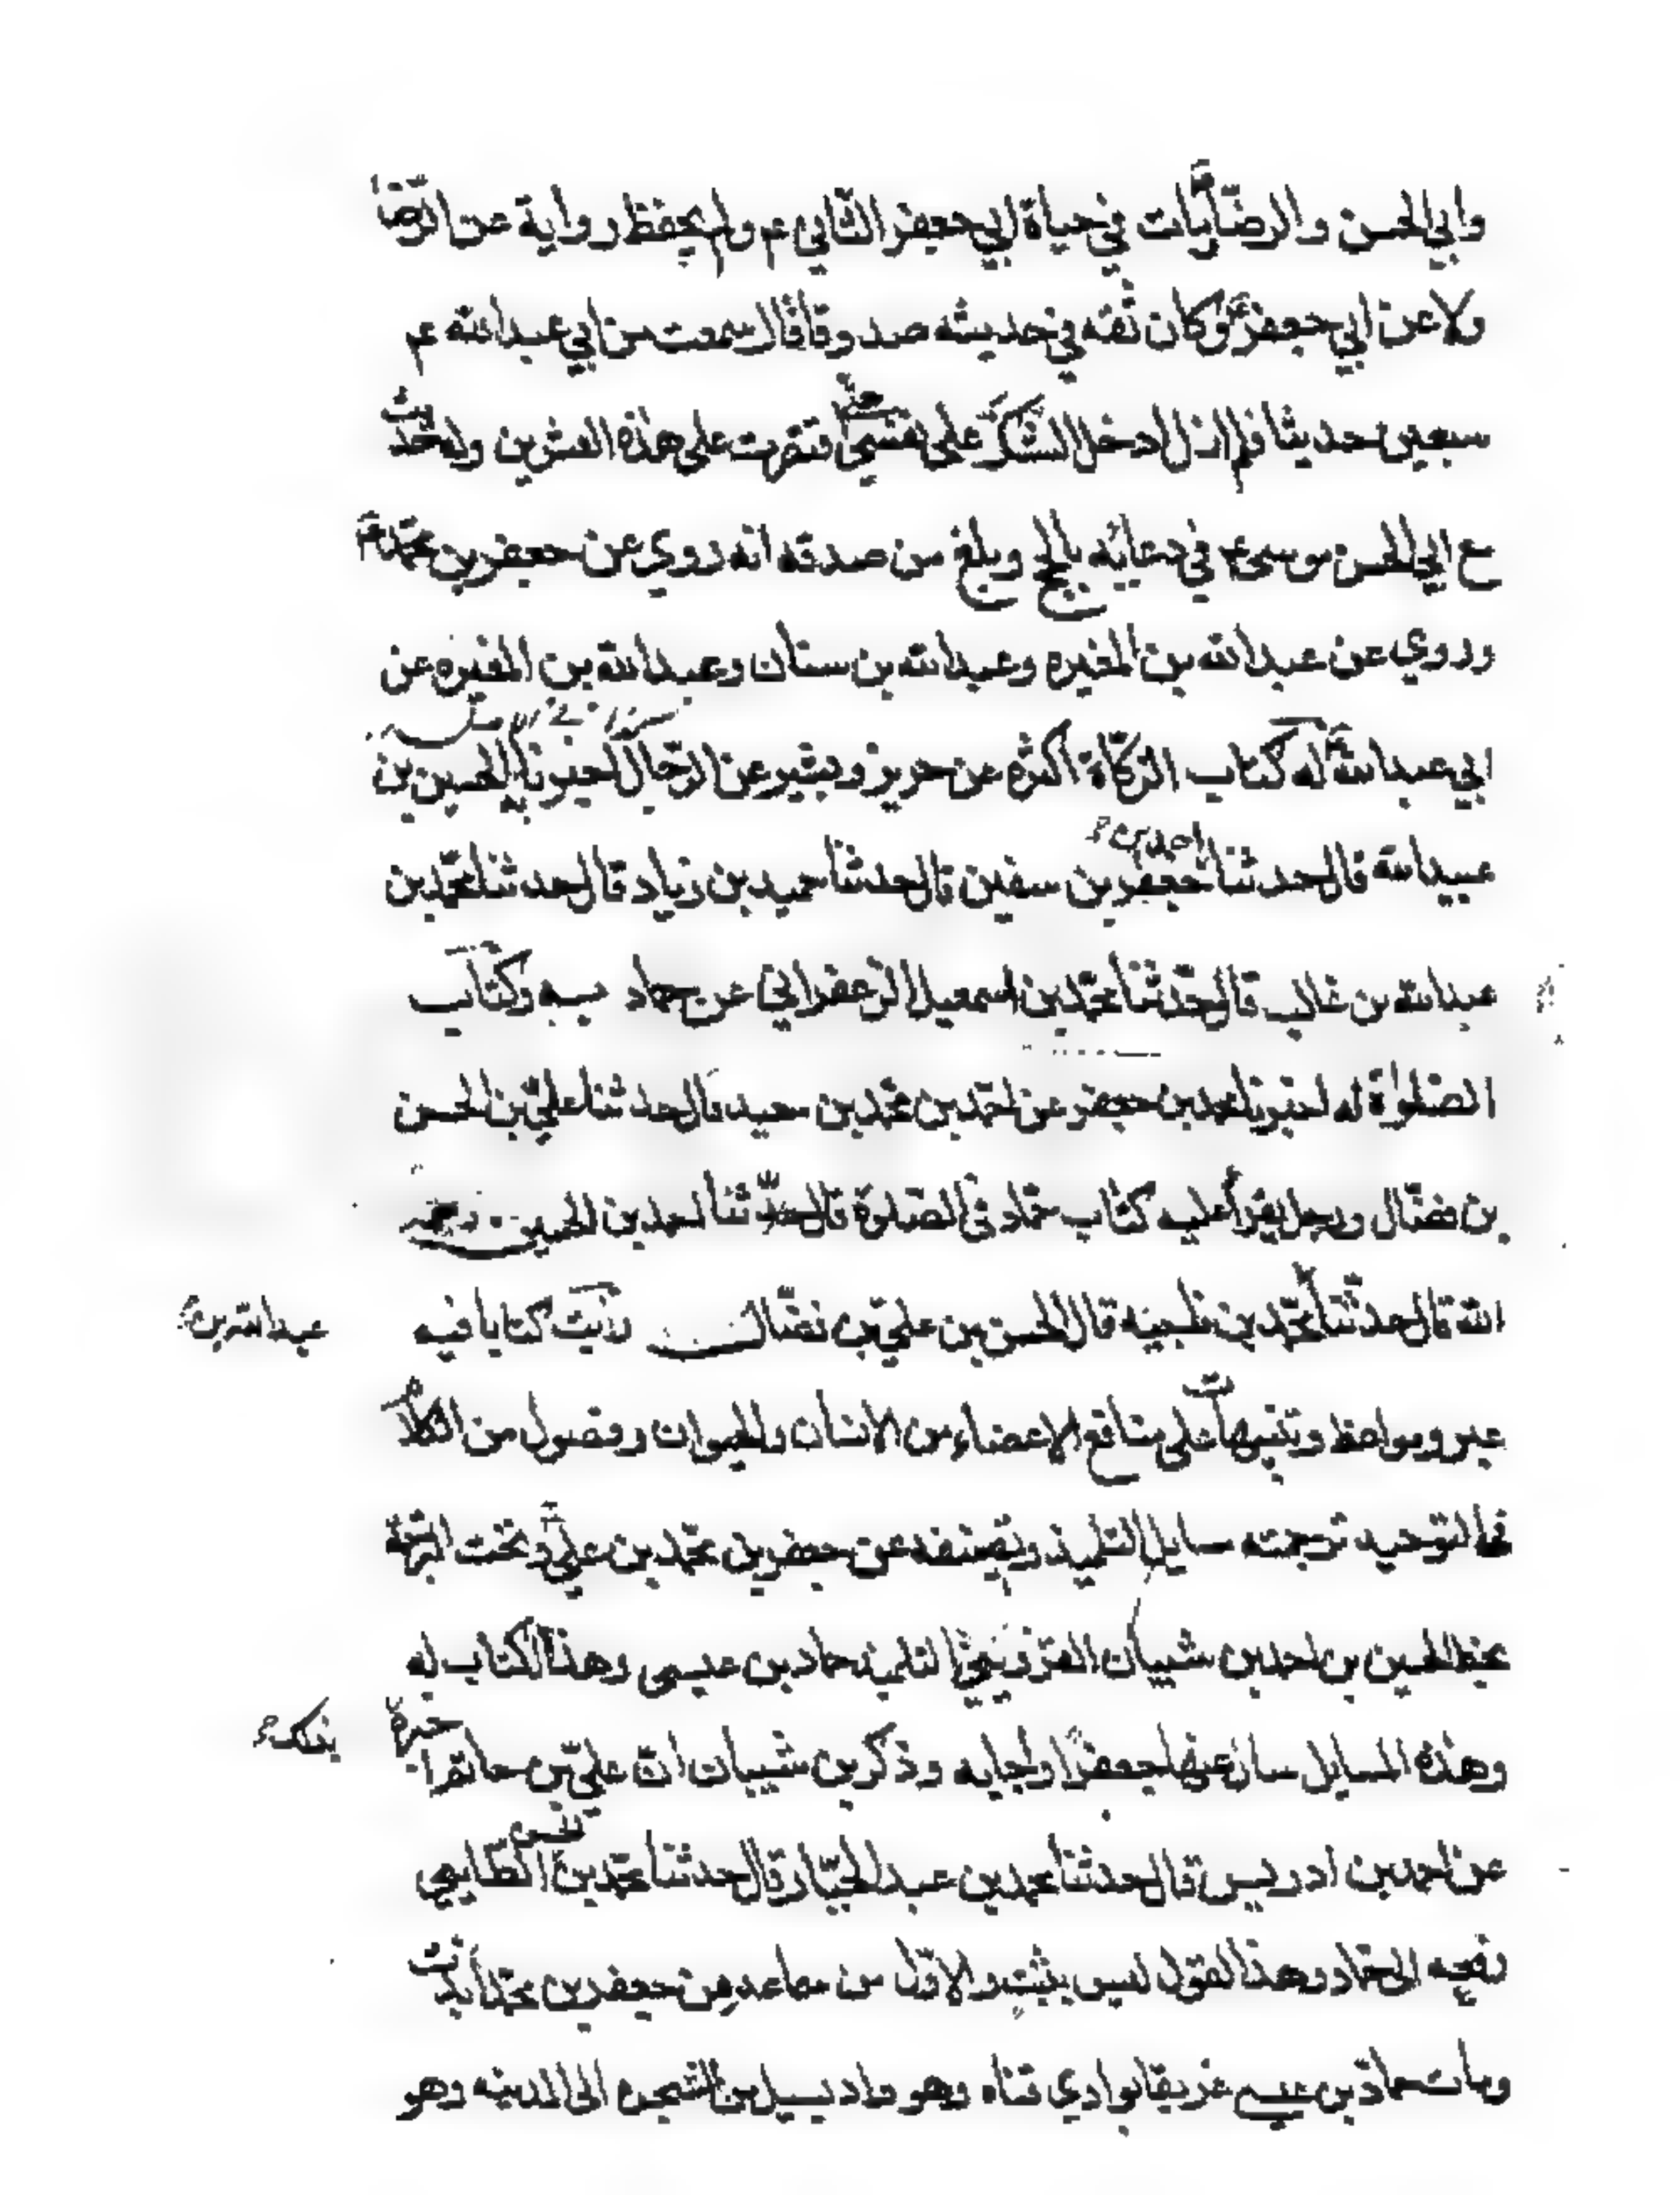 وابي الحسن والرضا ومات في حياة ابي جعفر الثاني ع م ولم يحفظ رواية عن الرضا
ولا عن ابي جعفر ع وكان ثقه في حديثه صدوقا قال سمعت من ابي عبدالله ع م
سبعين حديثا فلم ازل ادخل الشك على نفسي حتى اقتصرت على هذه العشرين وله حديث
مع ابي الحسن موسى ع في دعائه بالحج وبلغ من صدقه انه روي عن جعفر بن محمد ع
وروي عن عبدالله بن المغيره وعبدالله بن سنان وعبدالله بن المغيره عن
ابي عبدالله ع له كتاب الزكاة اكثره عن حريز وبشير عن الرجال اخبرنا به الحسين بن
عبيدالله قال حدثنا احمد بن جعفر بن سفين قال حدثنا حميد بن زياد قال حدثنا محمد بن
عبدالله بن غالب قال حدثنا محمد بن اسمعيل الزعفراني عن حماد به وكتاب
الصلواة له اخبرنا محمد بن جعفر عن احمد بن محمد بن سعيد قال حدثنا علي بن الحسن
بن فضال ورجل يقرأ عليه كتاب حماد في الصلوة قال حدثنا احمد بن الحسين رحمه
الله قال حدثنا محمد بن طيبه قال الحسن بن علي بن فضال رأيت كتابا فيه
عبدالله بن
عبر ومواعظ وتنبيهات على منافع الاعضاء من الانسان والحيوان وفصول من الكلام
في التوحيد ترجمته مسايل التلميذ وتصنيفه عن جعفر بن محمد بن علي وتحت الترجمة
بخط الحسين بن احمد بن شيبان القزويني التلميذ حماد بن عيسى وهذا الكتاب له
وهذه المسايل سأل عنها جعفرا واجابه وذكر بن شيبان ان علي بن حاتم اخبره
بذلك
عن احمد بن ادريس قال حدثنا محمد بن عبدالجبار قال حدثنا محمد بن الحسن الطايي
رفعه الى حماد وهذا القول ليس يثبت والاول من سماعه من جعفر بن محمد اثبت
ومات حماد بن عيسى غريقا بوادي قناه وهو واد يسيل من الشجره الى المدينه وهو